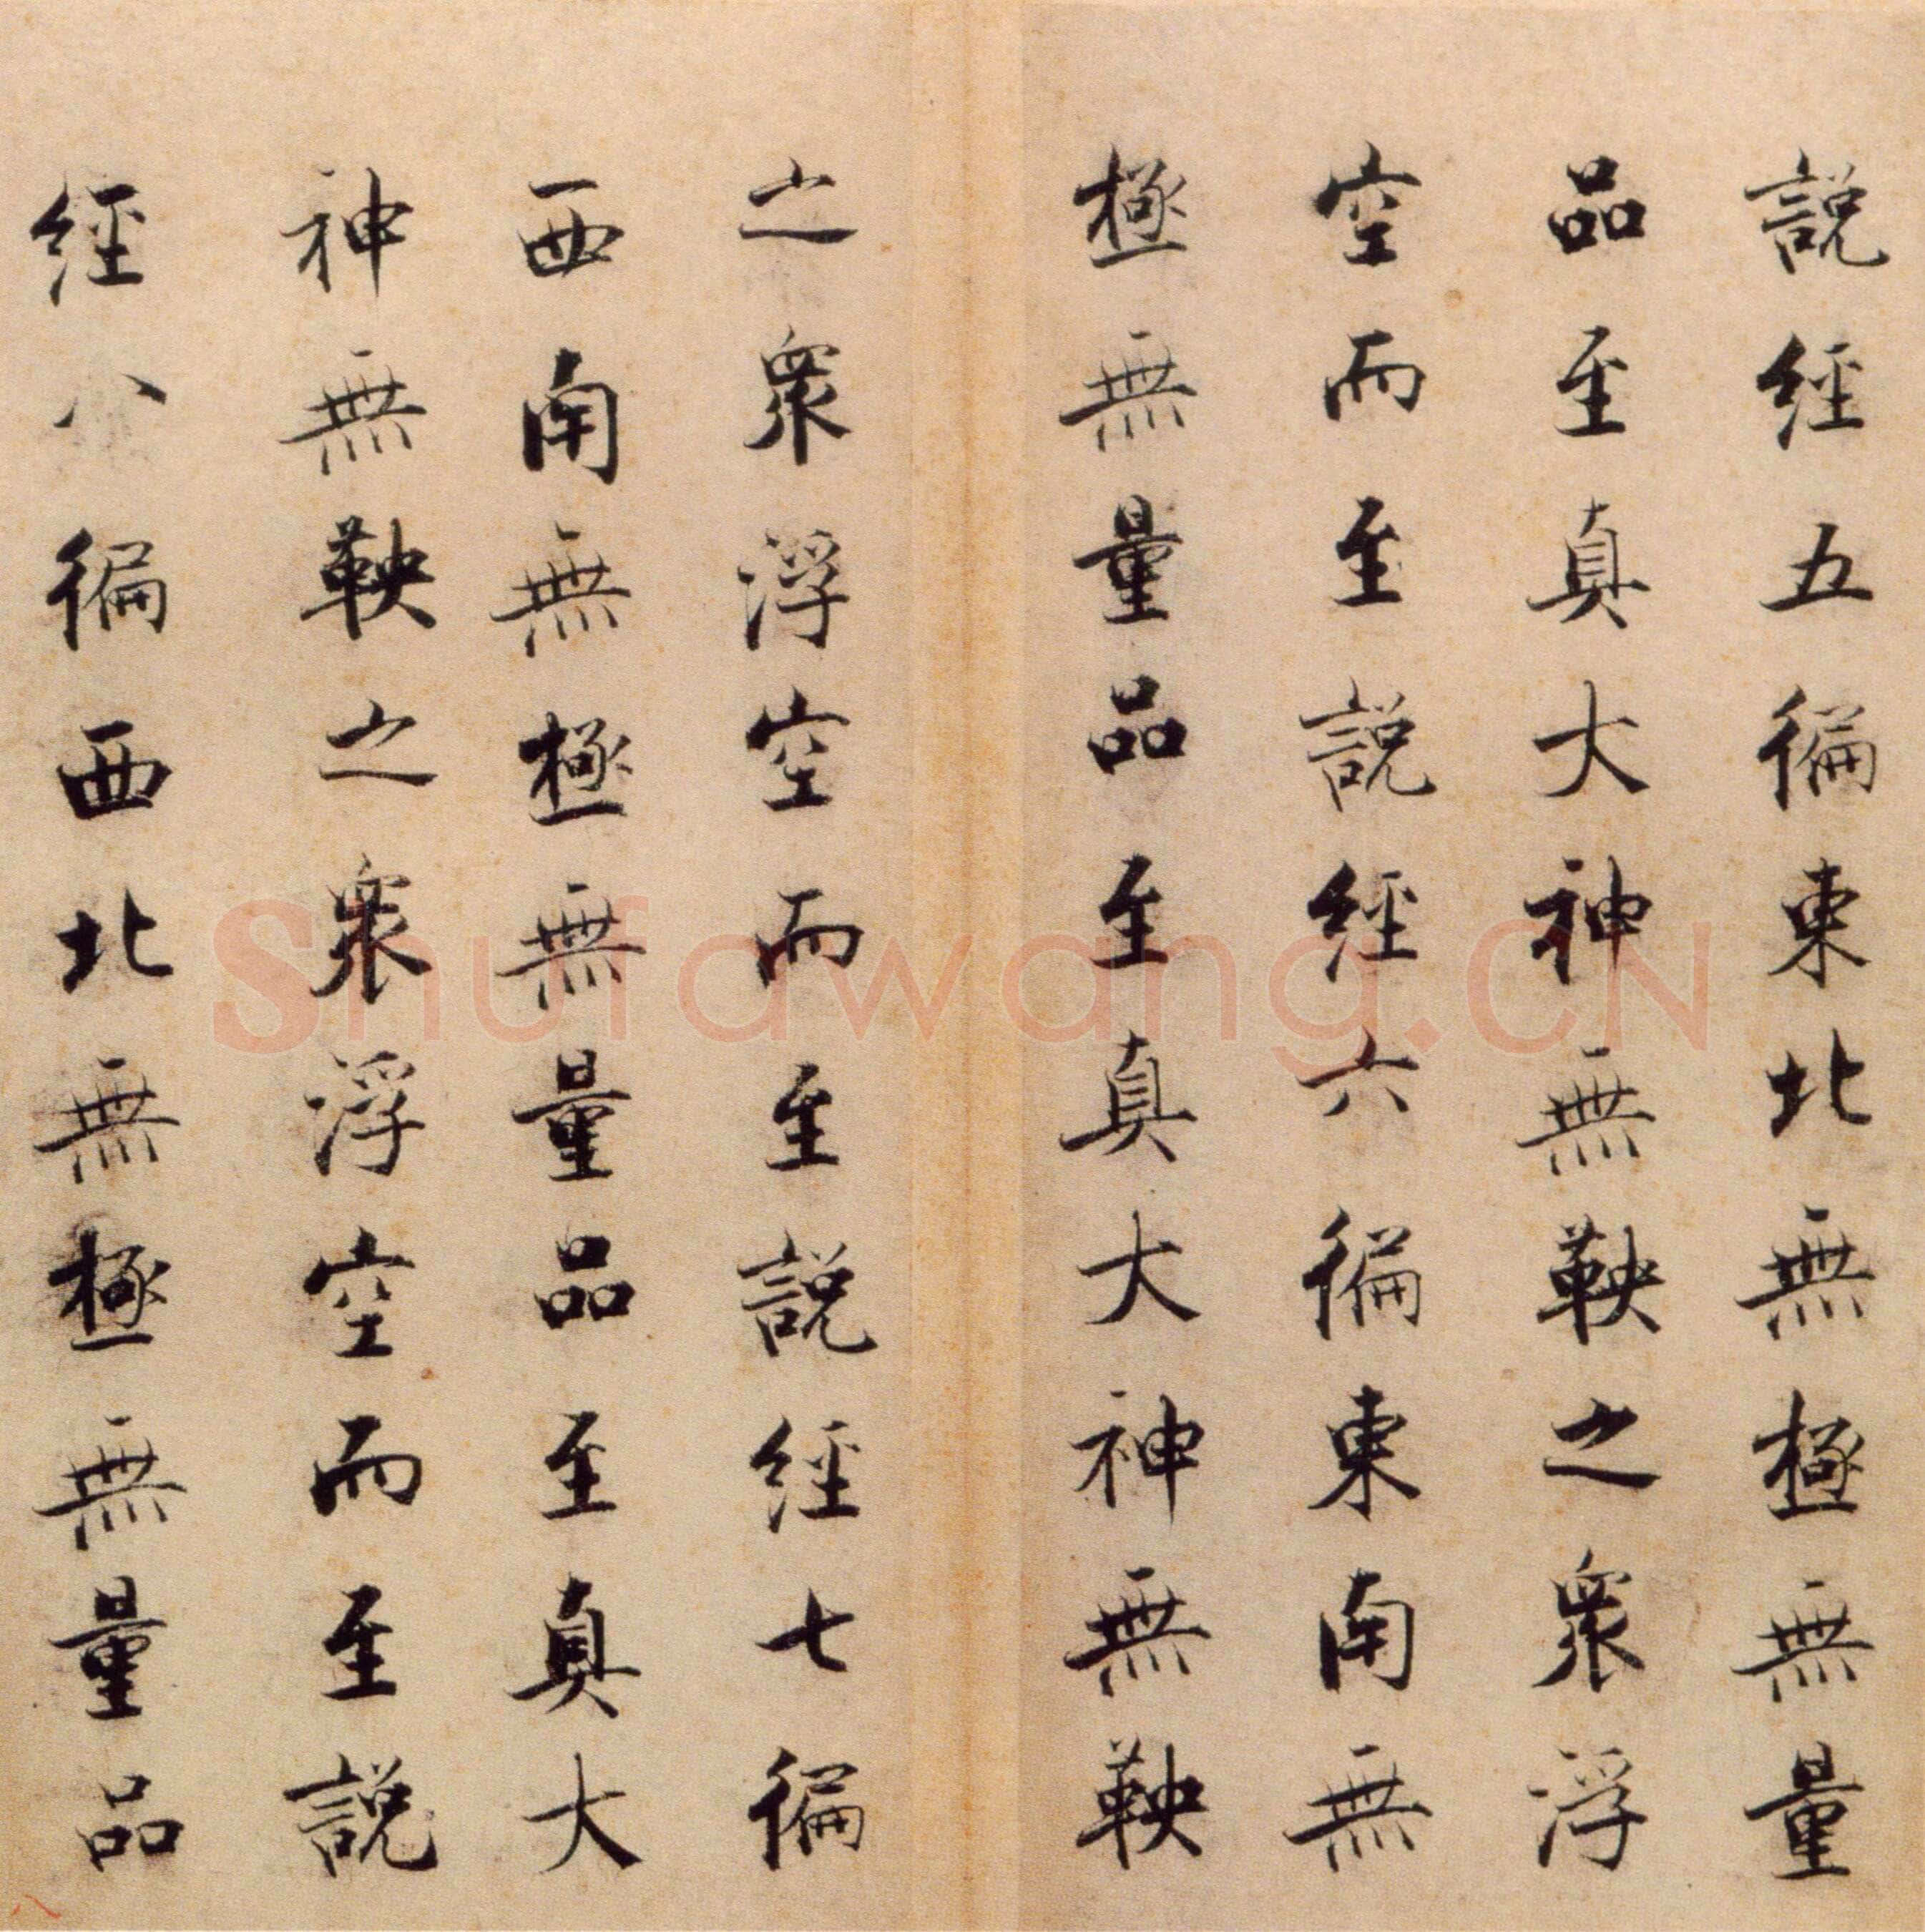 說經五徧東北無極無量
品至真大神無鞅之衆浮
空而至說經六徧東南無
極無量品至真大神無鞅
之衆浮空而至說經七徧
西南無極無量品至真大
神無鞅之衆浮空而至說
經八徧西北無極無量品
八
Shufawang.CN